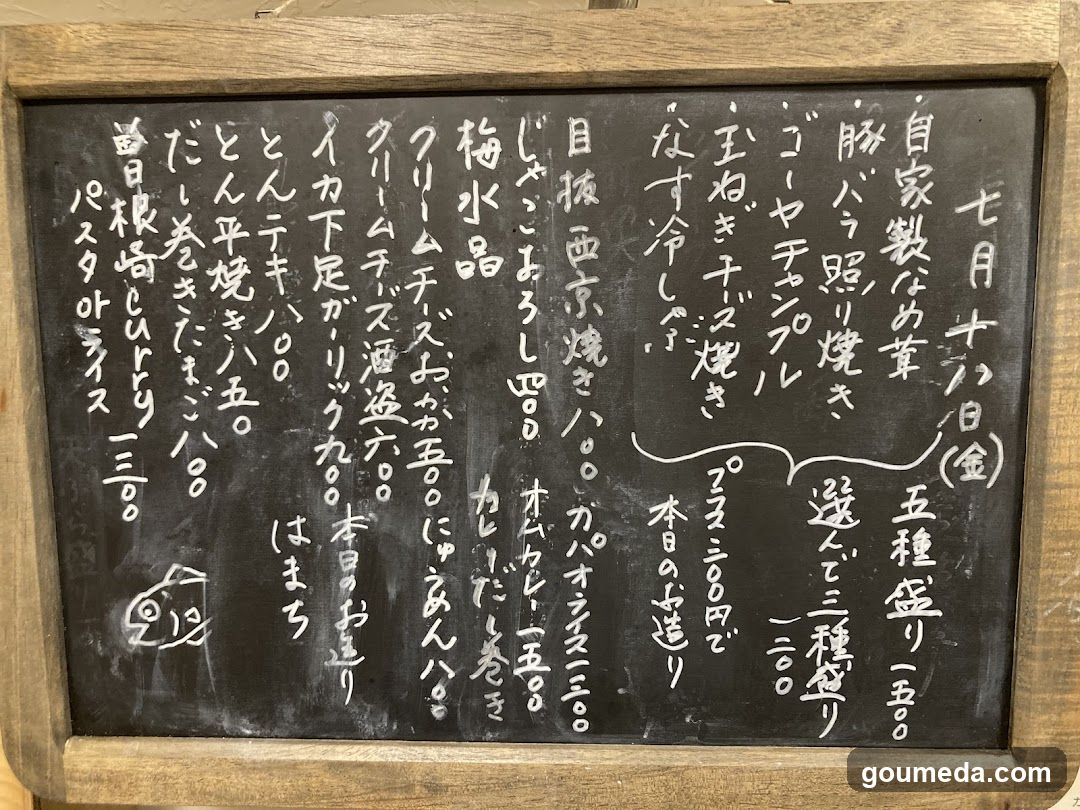 七月十八日(金)
・自家製なめ茸
・豚バラ照り焼き
・ゴーヤチャンプル
・玉ねぎチーズ焼き
・なす冷しゃぶ
五種盛り一五〇〇
選んで三種盛り
一二〇〇
プラス三〇〇円で
本日のお造り
目抜西京焼き八〇〇
じゃこおろし四〇〇
梅水晶
クリームチーズおかか五〇〇
クリームチーズ酒盗六〇〇
イカ下足ガーリック九〇〇
とんテキ八〇〇
とん平焼き八五〇
だし巻きたまご八〇〇
曽根崎curry一三〇〇
パスタorライス
ガパオライス一三〇〇
オムカレー一五〇〇
カレーだし巻き
にゅうめん八〇〇
本日のお造り
はまち
goumeda.com